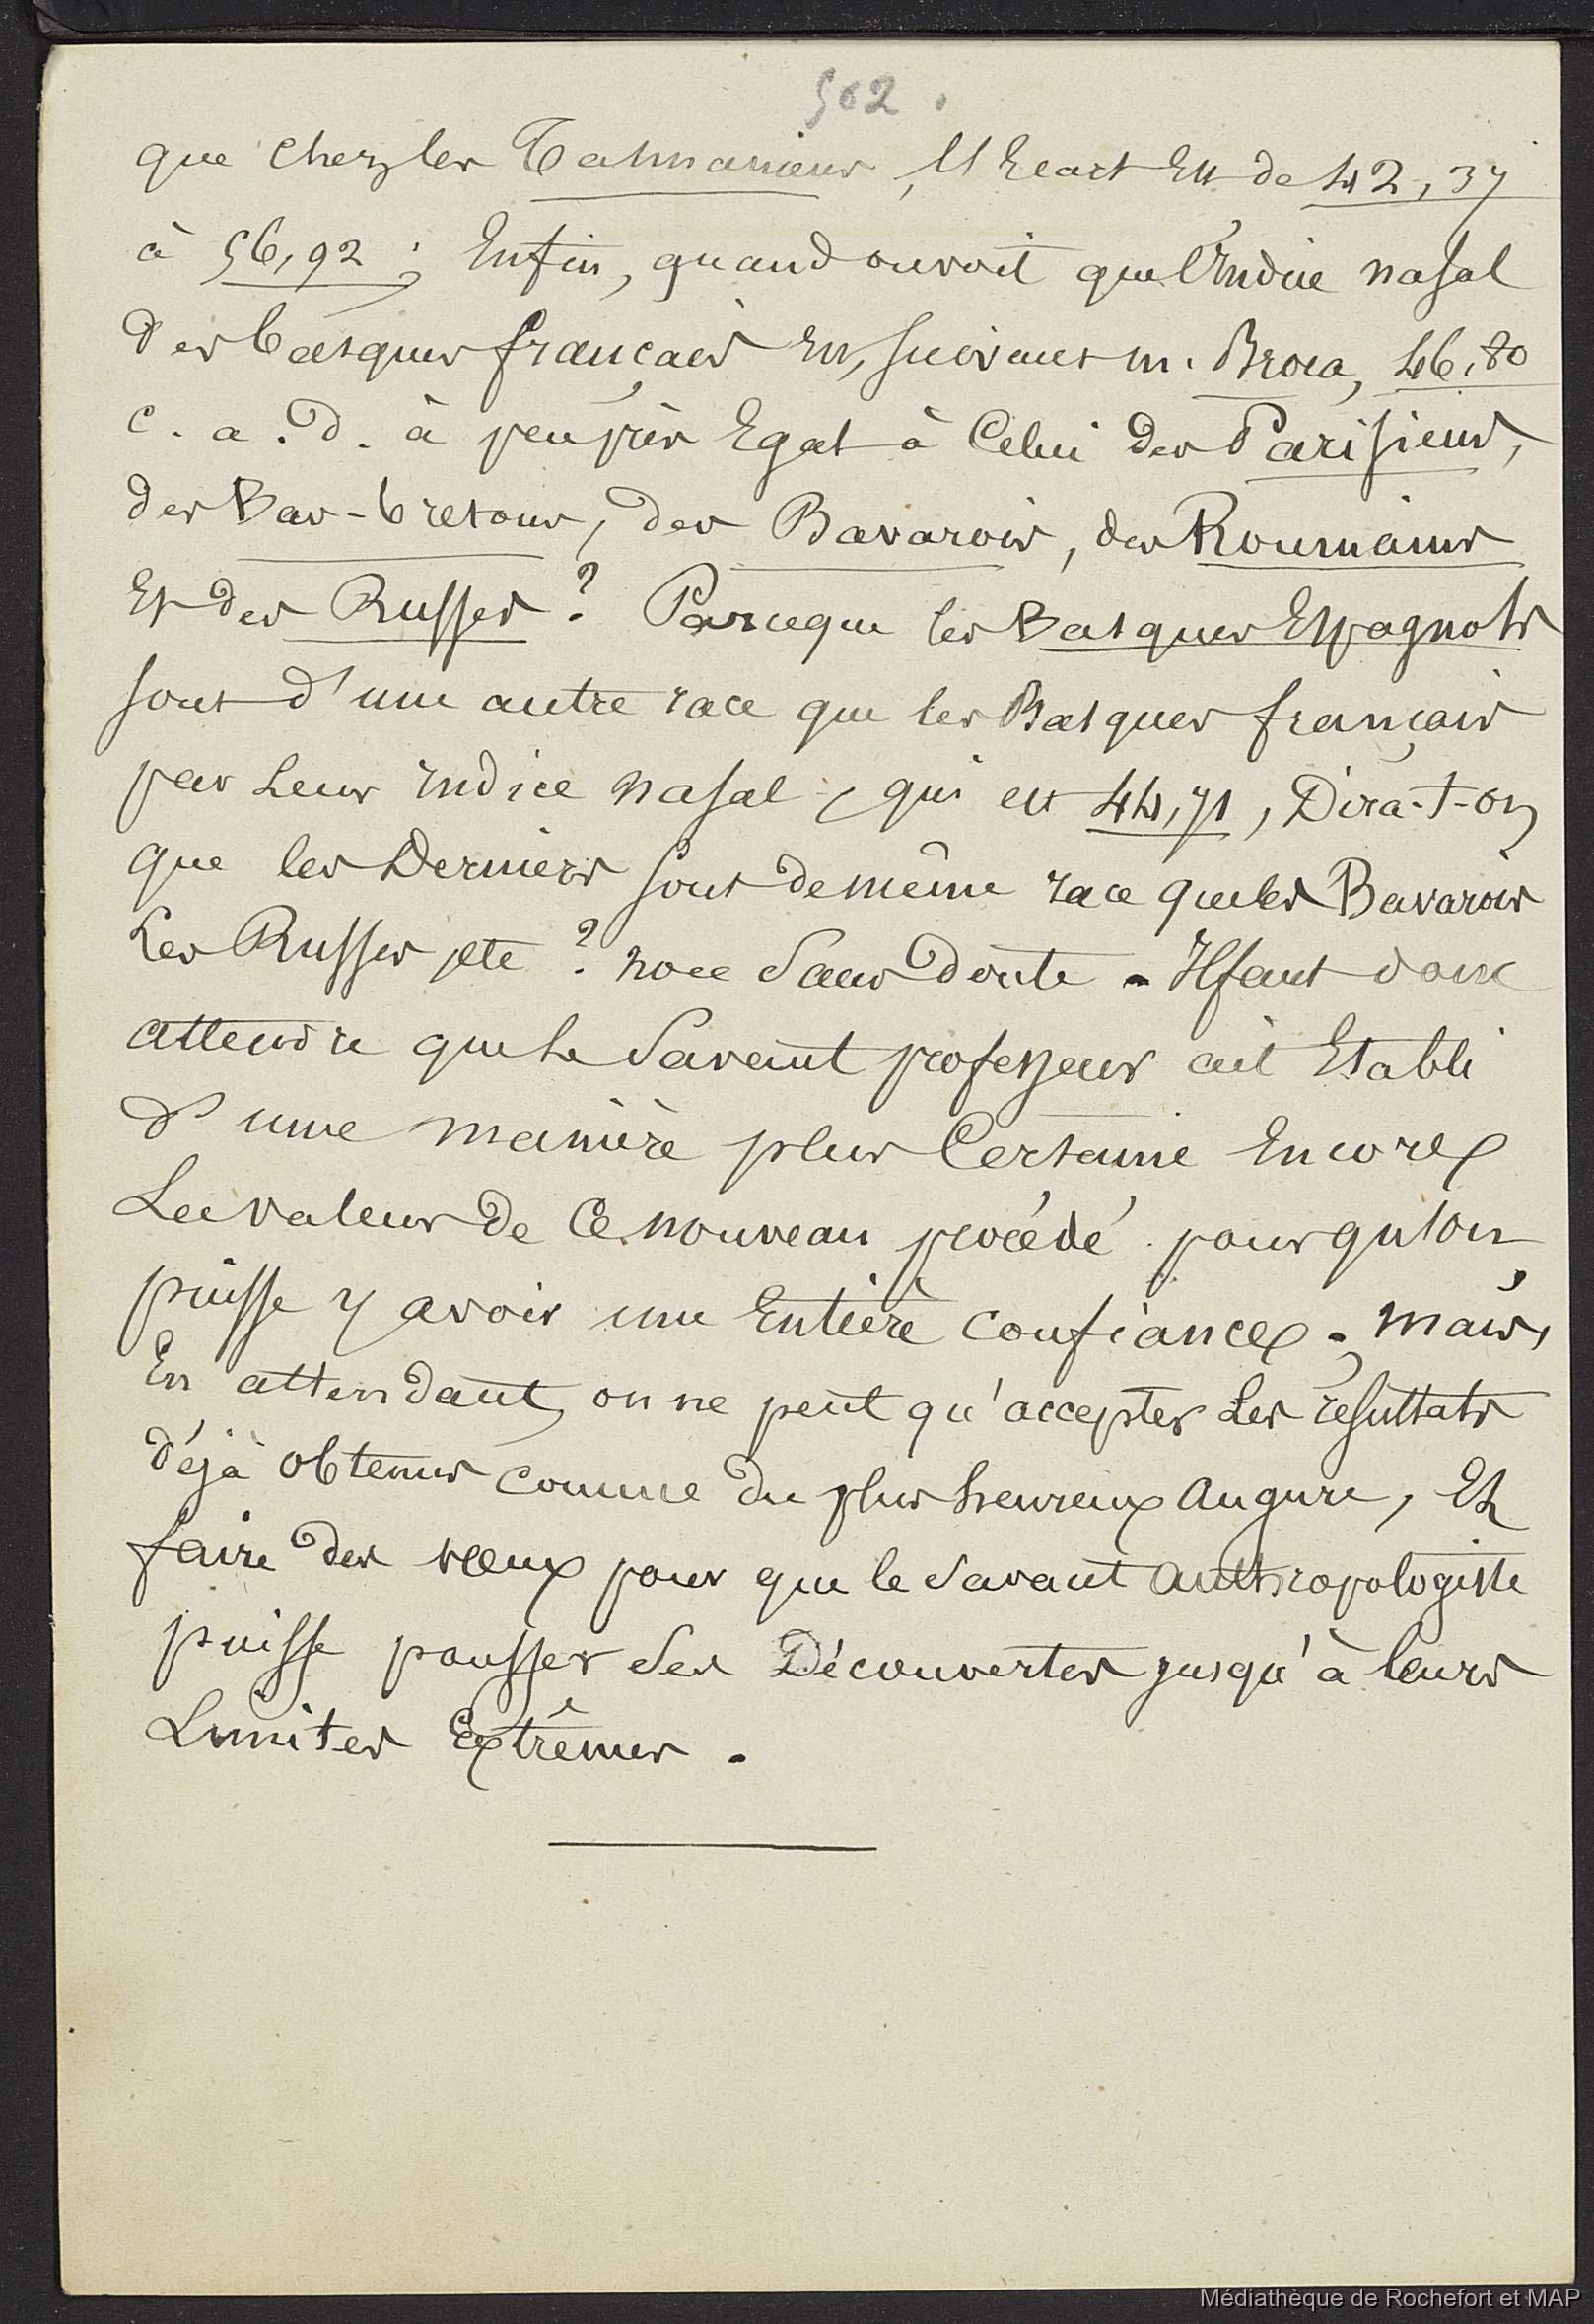 502.
que chez les Tasmaniens, l'Ecart Est de 42,37
à 56,92 ; Enfin, quand on voit que l'Indice nasal
des basques français Est, suivant m. Broca, 46,80
c. a. d. à peu près Egal à Celui des Parisiens,
des Bas-bretons, des Bavarois, des Roumains
Et des Russes ? Parceque les Basques Espagnols
sont d'une autre race que les Basques français
par Leur indice nasal, qui est 44,71, Dira-t-on
que les Derniers sont de même race que les Bavarois
Les Russes, etc ? non Sans Doute. Il faut donc
attendre que le Savant professeur ait Etabli
d'une manière plus Certaine Encore
La valeur de Ce nouveau procédé pour qu'on
puisse y avoir une Entière confiance. mais,
En attendant, on ne peut qu'accepter Les résultats
déjà obtenus comme du plus heureux Augure, Et
faire des vœux pour que le Savant anthropologiste
puisse pousser Ses Découvertes jusqu'à leurs
Limites Extrêmes.
Médiathèque de Rochefort et MAP